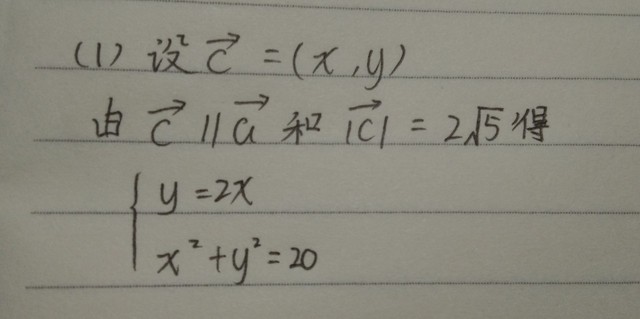 (1) 设 $\vec{c}$ = (x, y)
由 $\vec{c}$ // $\vec{a}$ 和 |$\vec{c}$| = 2√5 得
{ y = 2x
x² + y² = 20